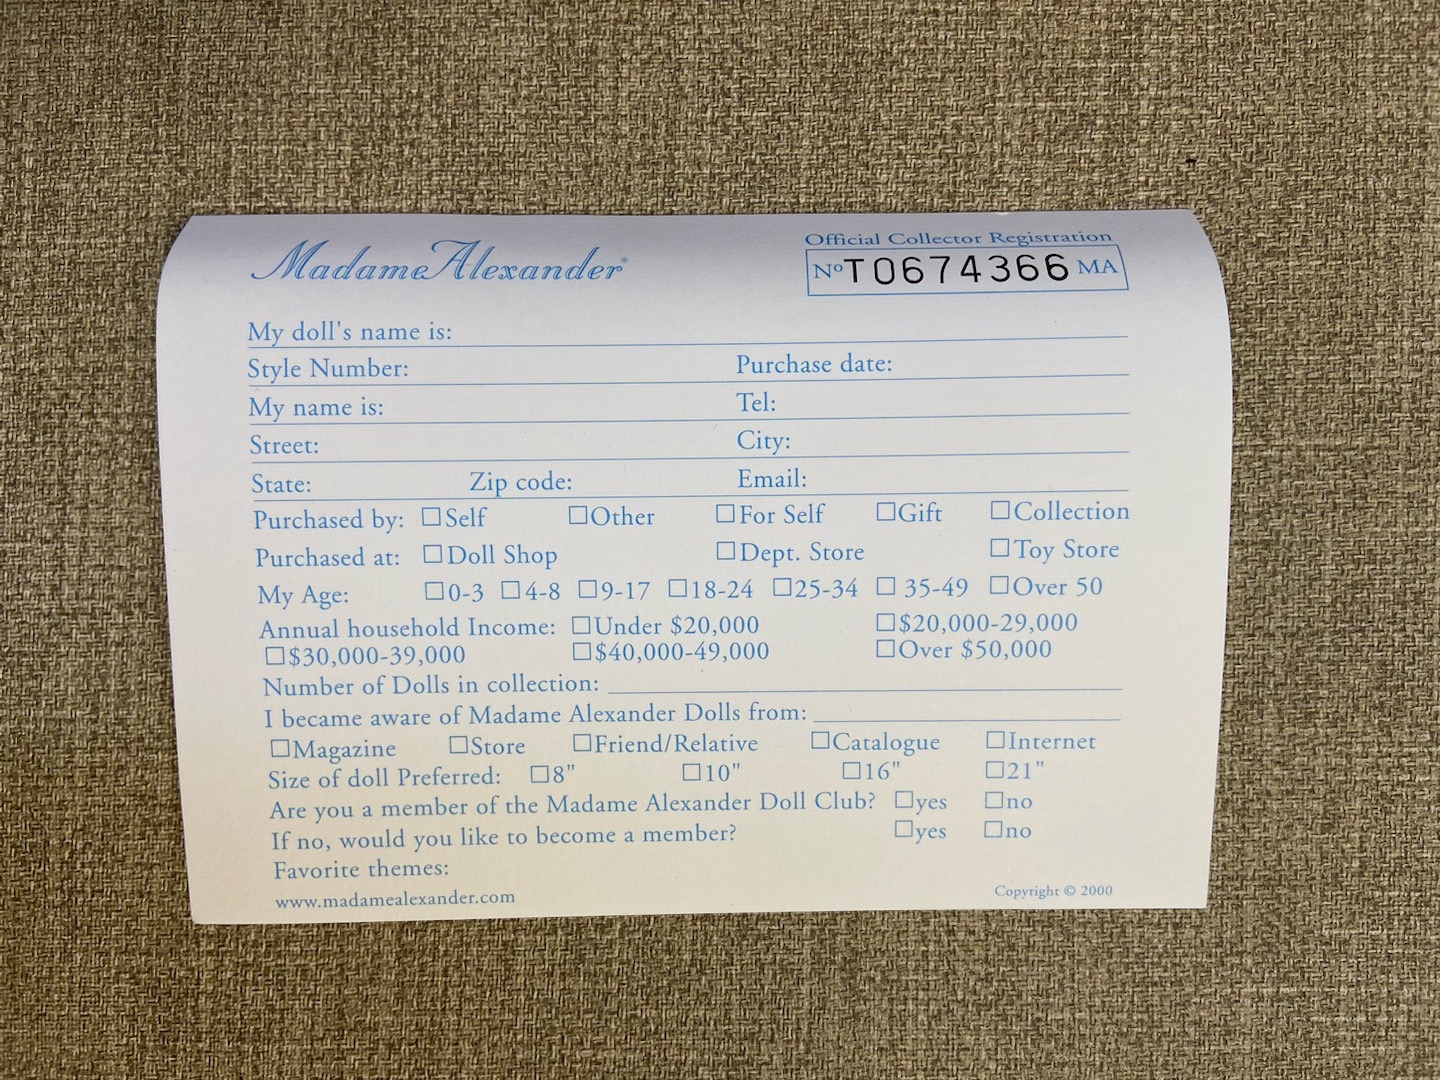 Madame Alexander®
Official Collector Registration
Nº T0674366 MA
My doll's name is:
Style Number: Purchase date:
My name is: Tel:
Street: City:
State: Zip code: Email:
Purchased by: ☐Self ☐Other ☐For Self ☐Gift ☐Collection
Purchased at: ☐Doll Shop ☐Dept. Store ☐Toy Store
My Age: ☐0-3 ☐4-8 ☐9-17 ☐18-24 ☐25-34 ☐ 35-49 ☐Over 50
Annual household Income: ☐Under $20,000 ☐$20,000-29,000
☐$30,000-39,000 ☐$40,000-49,000 ☐Over $50,000
Number of Dolls in collection:
I became aware of Madame Alexander Dolls from:
☐Magazine ☐Store ☐Friend/Relative ☐Catalogue ☐Internet
Size of doll Preferred: ☐8" ☐10" ☐16" ☐21"
Are you a member of the Madame Alexander Doll Club? ☐yes ☐no
If no, would you like to become a member? ☐yes ☐no
Favorite themes:
www.madamealexander.com Copyright © 2000